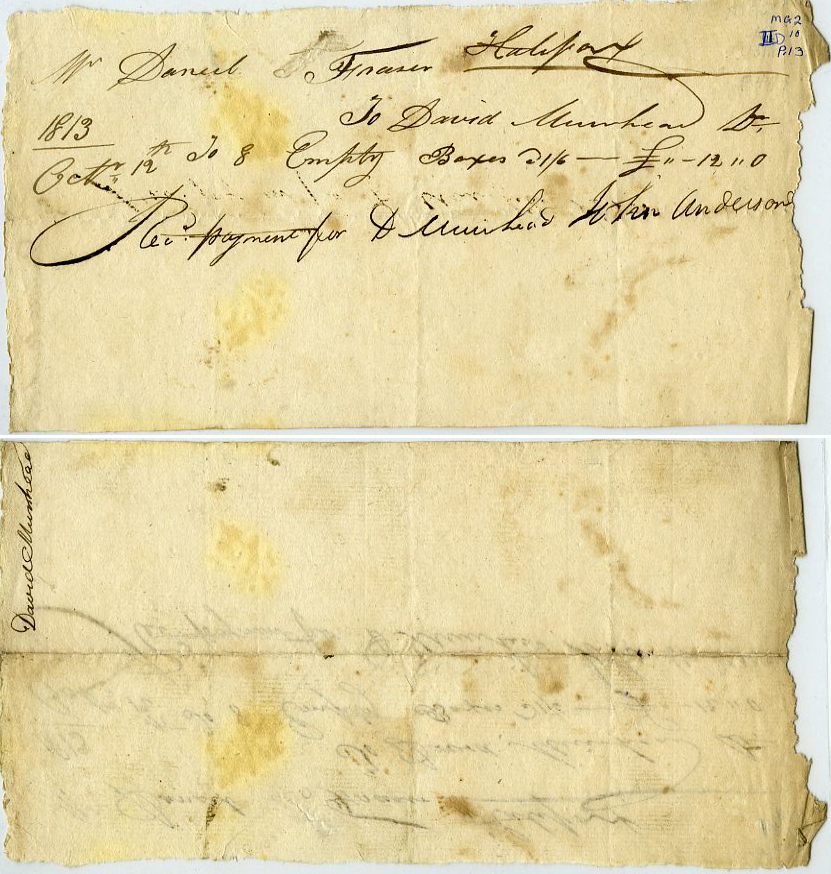 MG2
III D 10
P.13
Mr Daniel Fraser Halifax
To David Muirhead Dr.
1813
Octr. 12th To 8 Empty Boxes 1/6 — £ „ - 12 „ 0
Recd. payment for D Muirhead John Anderson
David Muirhead